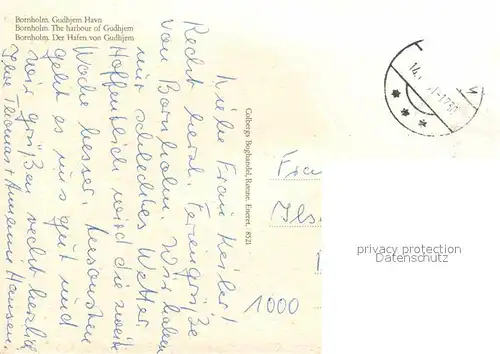 Bornholm. Gudhjem Havn
Bornholm. The harbour of Gudhjem
Bornholm. Der Hafen von Gudhjem
Liebe Frau Keiler!
Recht herzl. Feriengrüße
von Bornholm. Wir haben
nur schlechtes Wetter.
Hoffentlich wird die zweite
Woche besser. Ansonsten
geht es uns gut und
wir grüßen recht herzlich
Ihre Thomas + Annemi Hansen.
Colbergs Boghandel, Rønne. Eneret. 8521
Frau
Ils
1000
14.
privacy protection
Datenschutz